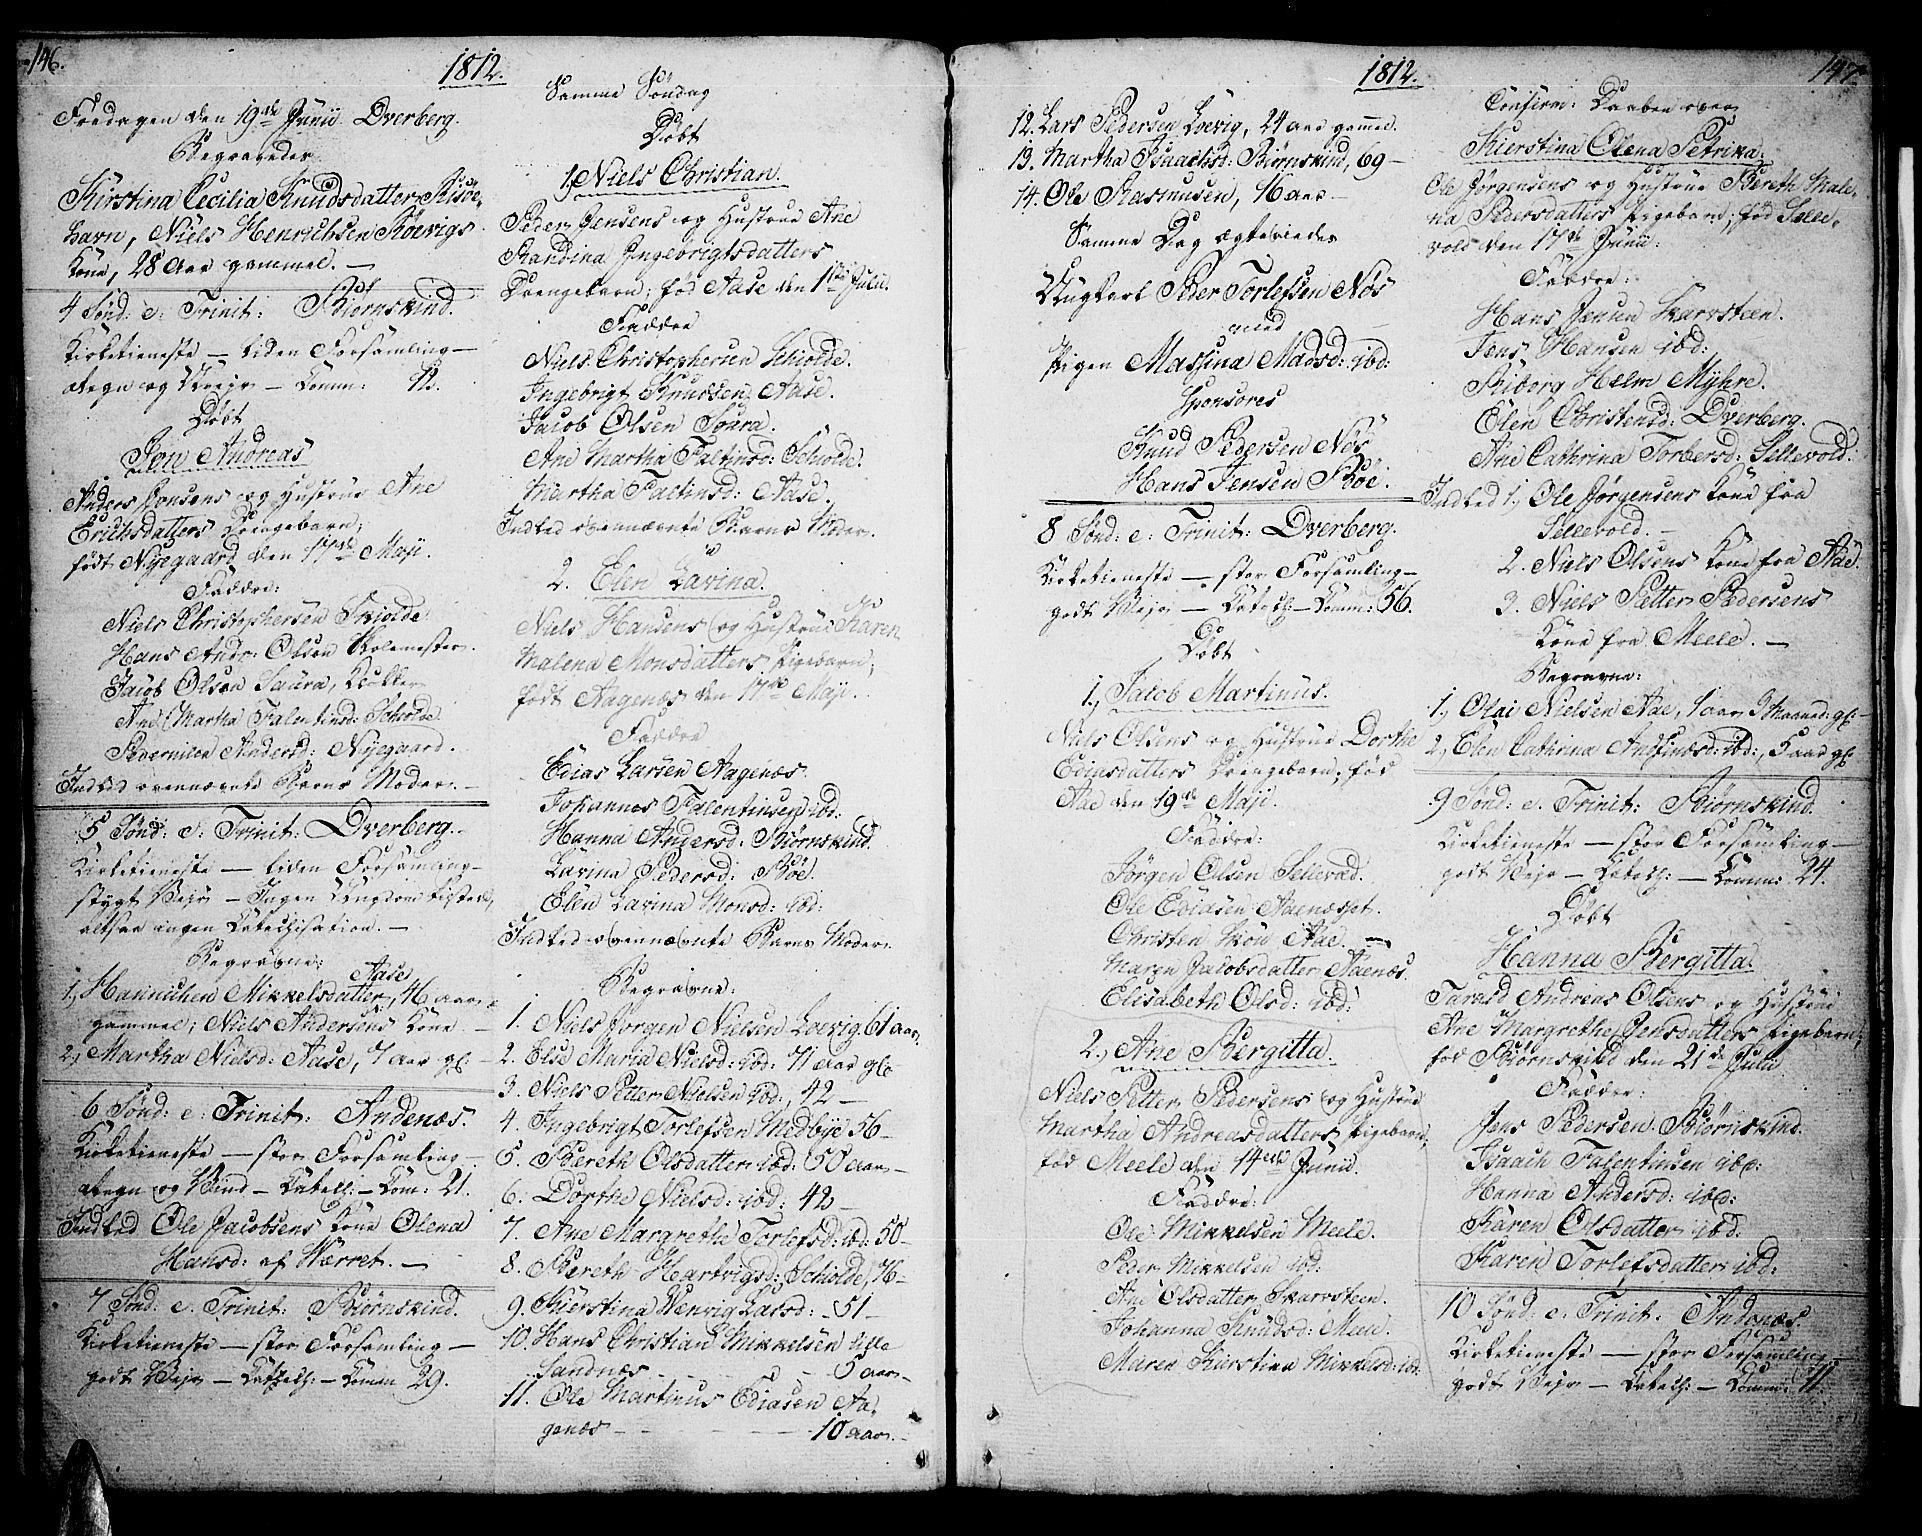 146.
1812.
Fredagen den 19de Junii Dverberg.
Begravedes
Kirstina Cecilia Knudsdatter Risöe,
havn, Niels Henrichsen Röevigs
Kone, 28 Aar gammel. —
4 Sönd: e: Trinit: Biörnskind.
Kirketieneste — liden Forsamling —
Regn og Uvejr — Comm: 12.
Döbt
Jon Andreas
Anders Jonsens og Hustrue Ane
Erichsdatters Drengebarn;
födt Nyegaard den 17de Maji.
Faddre:
Niels Christophersen Skjolde
Hans Andr: Olsen Skolemester.
Jacob Olsen Saura, Klokker
Ane Martha Falentinsd: Schiolde
Pedernilla Andersd: Nyegaard.
Indled ovennævnte Barns Moder. —
5 Sönd: e: Trinit: Dverberg. —
Kirketieneste — liden Forsamling —
stygt Vejr — Ingen Ungdom tilstede,
altsaa ingen Catechisation. —
Begravne:
1, Hannichen Mikkelsdatter Aase, 46 aar
gammel; Niels Andersens Kone —
2, Martha Nielsd: Aase, 7 aar gl: —
6 Sönd: e: Trinit: Andenæs.
Kirketieneste — stor Forsamling —
Regn og Vind — Catech: — Com: 21.
Indled Ole Jacobsens Kone Olena
Hansd: af Værret. —
7 Sönd: e: Trinit: Biörnskind.
Kirketieneste — stor Forsamling —
godt Vejr — Catech: — Comm 29.
Samme Söndag
Döbt
1, Niels Christian.
Peder Jensens og Hustrue Ane
Randina Ingebrigtsdatters
Drengebarn; föd Aase den 1ste Julii.
Faddre
Niels Christophersen Schiolde.
Ingebrigt Knudsen Aase.
Jacob Olsen Soura.
Ane Martha Faltinsd: Schiolde.
Martha Faltinsd: Aase.
Indled ovennævnte Barns Moder.
2. Elen Lavina.
Niels Hansens og Hustrue Karen
Malena Monsdatters Pigebarn;
födt Aagenæs den 17de Maji.
Faddre
Edias Larsen Aagenæs.
Johannes Falentinsen ibd:
Hanna Andersd: Biörnskind.
Lavina Pedersd: Böe.
Elen Lavina Monsd: ibd:
Indled ovennævnte Barns Moder.
Begravne:
1. Niels Jörgen Nielsen Loevig, 61 aar.
2. Else Maria Nielsd: ibd: 71 Aar gl:
3. Niels Petter Nielsen ibd:, 42 —
4. Ingebrigt Torlefsen Medbye 56 —
5. Bereth Olsdatter ibd: 50 aar —
6. Dorthe Nielsd: ibd: 42 —
7. Ane Margrethe Torlefsd: ibd: 50 —
8. Bereth Hartvigsd: Schiolde, 76 —
9. Kierstina Wenvig Larsd: — 51 —
10. Hans Christian Mikkelsen lille
Sandnæs - - - - 5 aar —
11. Ole Martinus Ediasen Aa,
genæs - - - - 10 aar. —
1812.
147.
12. Lars Pedersen Loevig, 24 Aar gammel.
13. Martha Isaachsd: Biörnskind, 69 —
14. Ole Rasmusen, 16 Aar —
Samme Dag Ægteviedes
Ungkarl Peder Torlefsen Nös
med
Pigen Massina Madsd: ibd:
Sponsores
Knud Pedersen Nös
Hans Jensen Böe.
8 Sönd: e: Trinit: Dverberg.
Kirketieneste — stor Forsamling —
godt Vejr — Catech — Comm: 56.
Döbt
1, Jacob Martinus.
Niels Olsens og Hustrue Dorthe
Ediasdatters Drengebarn; föd
Aae den 19de Maji.
Faddre:
Jörgen Olsen Sellevold.
Ole Ediasen Aaenæsset.
Christen Skou Aae. —
Maren Jacobsdatter Aaenæs.
Elisabeth Olsd: ibd:
2, Ane Bergitta.
Niels Petter Pedersens og Hustrue
Martha Andreasdatters Pigebarn;
föd Meele den 14de Junii.
Faddre:
Ole Mikkelsen Meele.
Peder Mikkelsen ibd:
Ane Olsdatter Skarvsteen.
Johanna Knudsd: Meele.
Maren Kirstina Mikkelsd: ibd:
Confirm: Daaben over
Kierstina Olena Petrika.
Ole Jörgensens og Hustrue Bereth Male,
na Pedersdatters Pigebarn; föd Selle,
vold den 17de Junii:
Faddre:
Hans Jensen Skarvsteen.
Jens Hansen ibd:
Riborg Helm Myhre.
Elen Christensd: Dverberg.
Ane Cathrina Torbersd: Sellevold.
Indled 1, Ole Jörgensens Kone fra
Sellevold. —
2. Niels Olsens Kone fra Aae.
3. Niels Petter Pedersens
Kone fra Meele. —
Begravne:
1, Olai Nielsen Aae, 1 aar, 9 Maaned: gl: —
2, Elen Cathrina Andfindsd: ibd:, Kaar gl:
9 Sönd: e: Trinit: Biörnskind.
Kirketieneste — stor Forsamling —
godt Vejr — Catech: — Comm: 24.
Döbt
Hanna Bergitta.
Andreas Olsens og Hustrue
Ane Margrethe Jensdatters Pigebarn,
föd Biörnskind den 21de Julii
Faddre:
Jens Pedersen Biörnskind.
Isaach Falentinsen ibd:
Hanna Andersd: ibd:
Karen Olsdatter ibd:
Karen Torlefsdatter ibd:
10 Sönd: e: Trinit: Andenæs.
Kirketieneste — stor Forsamling —
godt Vejr — Catech: — Comm: 11.